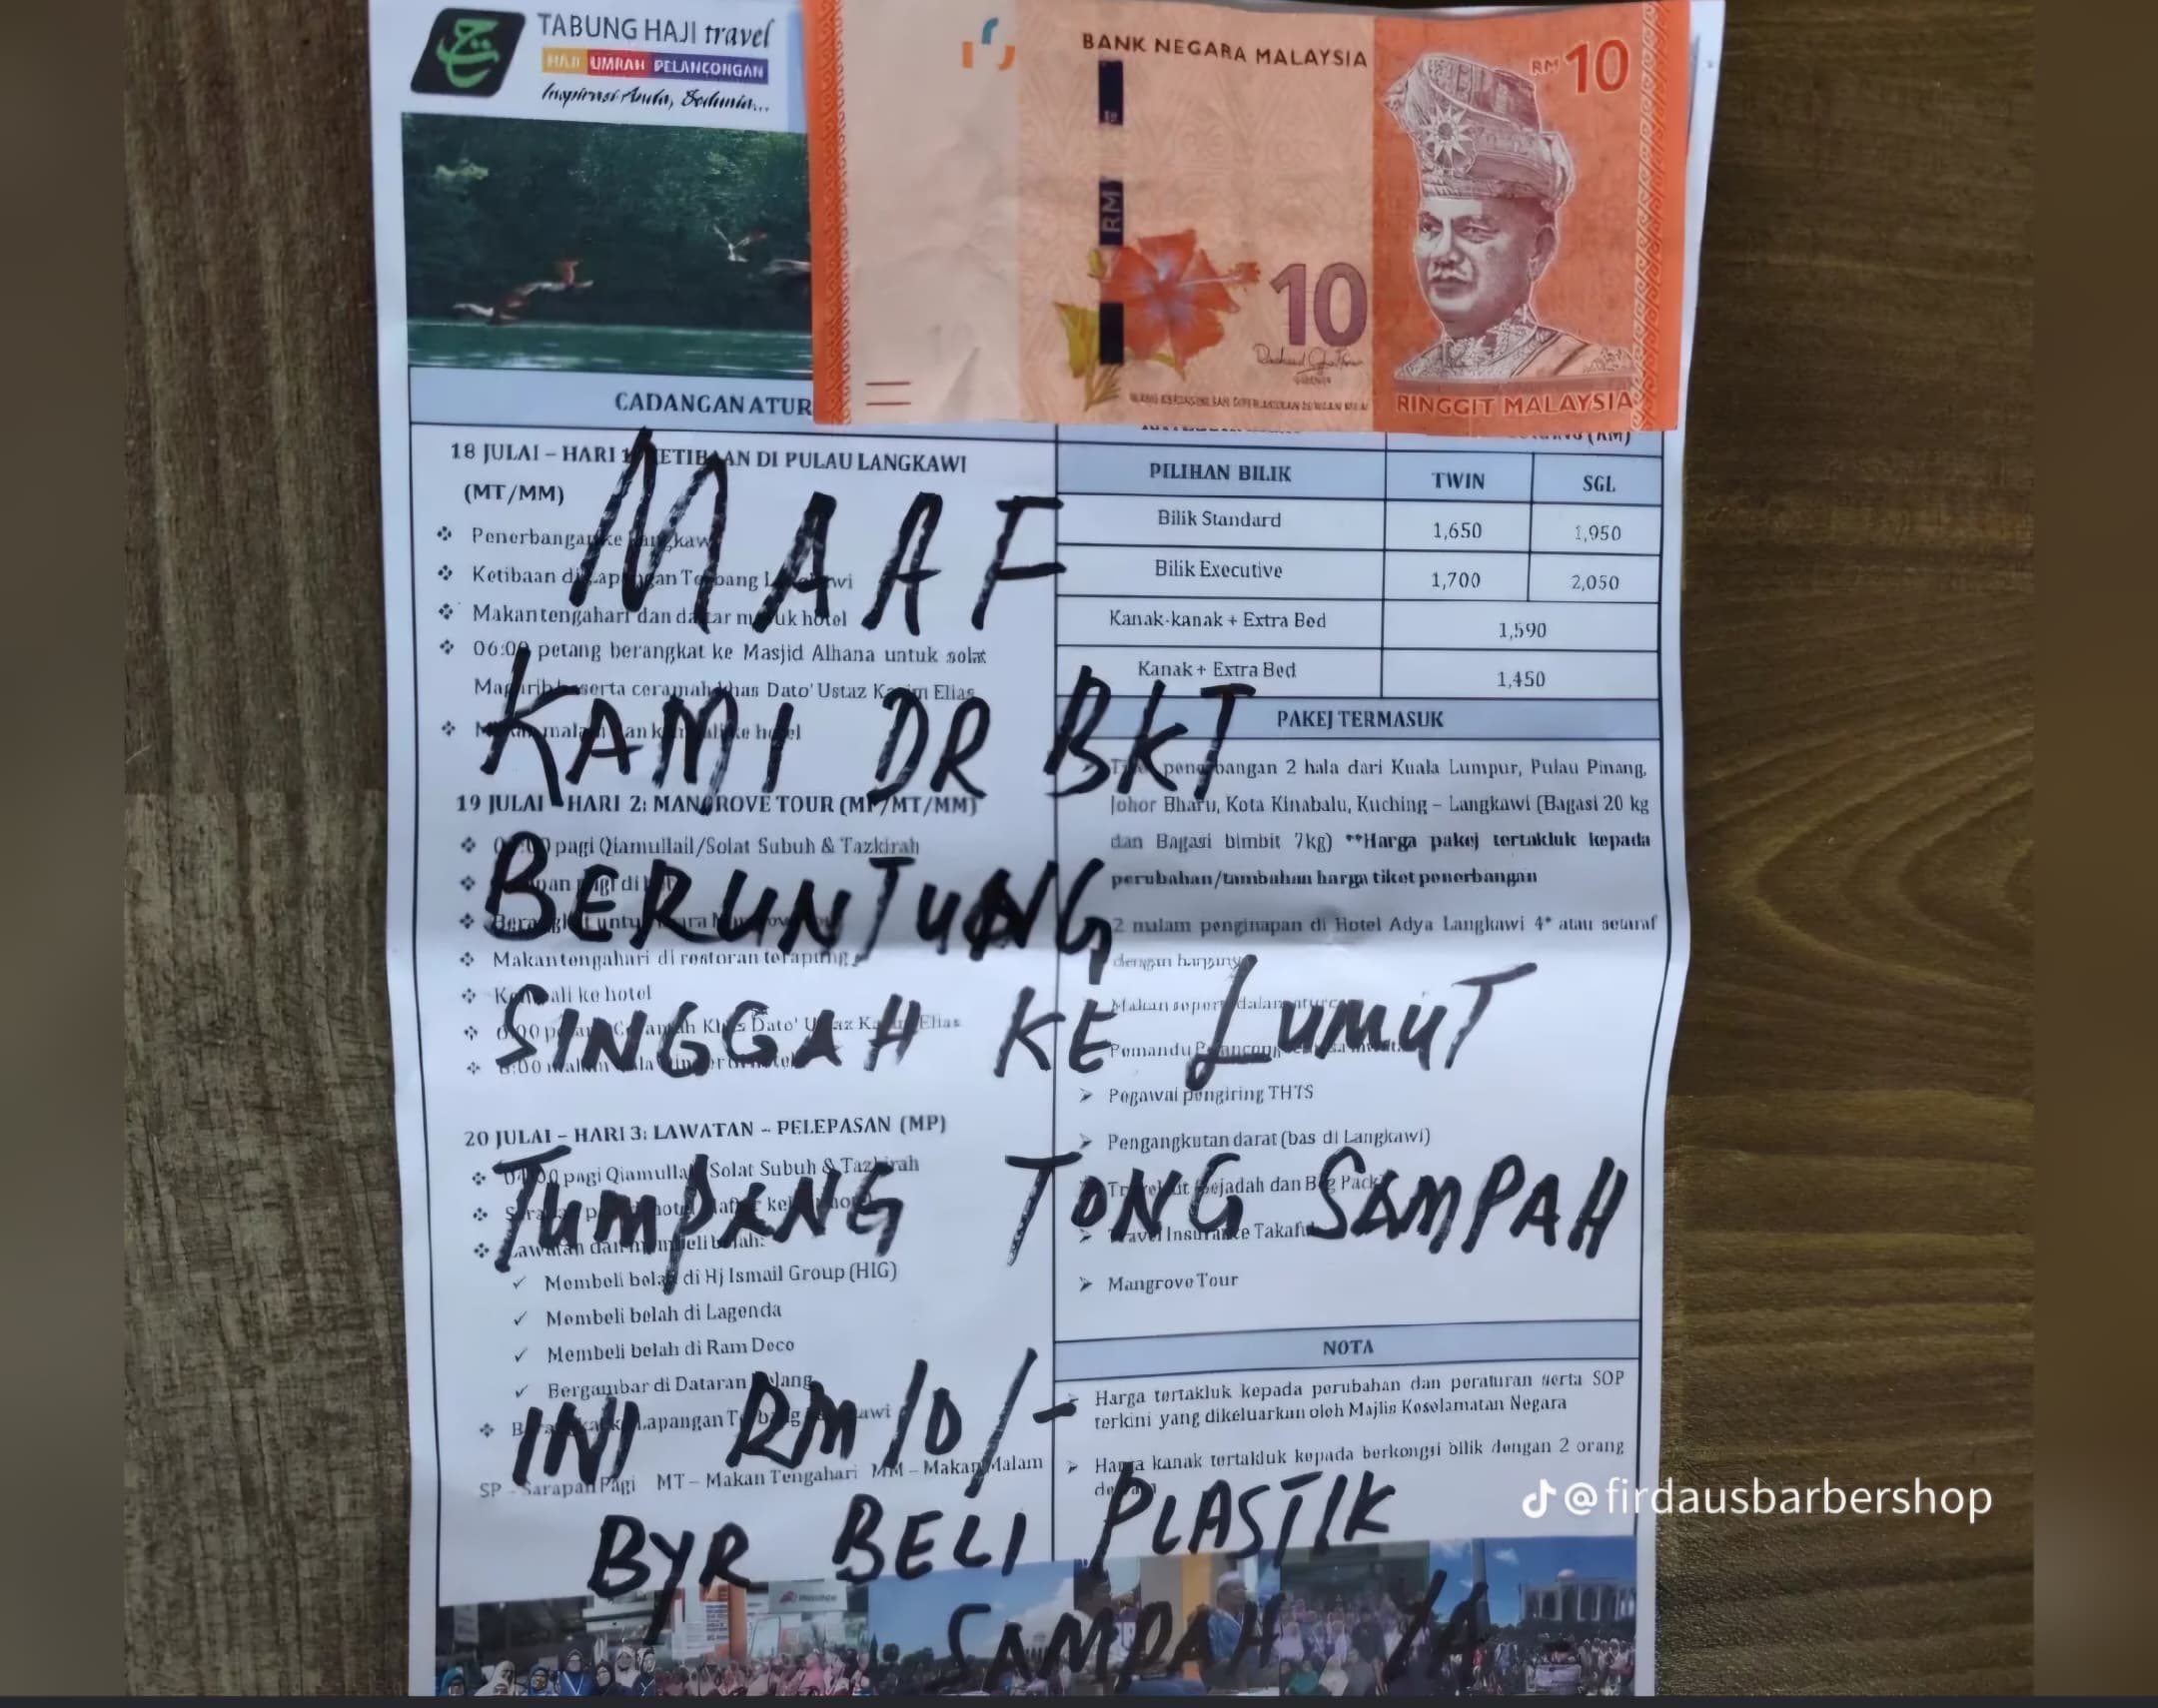 TABUNG HAJI travel
HAJI UMRAH PELANCONGAN
Inspirasi Anda, Sedunia...
BANK NEGARA MALAYSIA
RM10
RM
10
RINGGIT MALAYSIA
CADANGAN ATUR
18 JULAI – HARI 1: KETIBAAN DI PULAU LANGKAWI
(MT/MM)
Penerbangan ke Langkawi
Ketibaan di Lapangan Terbang Langkawi
Makan tengahari dan daftar masuk hotel
06:00 petang berangkat ke Masjid Alhana untuk solat
Maghrib beserta ceramah khas Dato' Ustaz Kazim Elias
Makan malam dan kembali ke hotel
19 JULAI – HARI 2: MANGROVE TOUR (MP/MT/MM)
pagi Qiamullail/Solat Subuh & Tazkirah
Sarapan pagi di
Berangkat untuk
Makan tengahari di restoran terapung
Kembali ke hotel
Ceramah Khas Dato' Ustaz Kazim Elias
20 JULAI – HARI 3: LAWATAN – PELEPASAN (MP)
pagi Qiamullail/Solat Subuh & Tazkirah
Lawatan dan membeli belah:
Membeli belah di Hj Ismail Group (HIG)
Membeli belah di Lagenda
Membeli belah di Ram Deco
Bergambar di Dataran Helang
Berangkat ke Lapangan Terbang Langkawi
SP – Sarapan Pagi MT – Makan Tengahari MM – Makan Malam
(RM)
PILIHAN BILIK TWIN SGL
Bilik Standard 1,650 1,950
Bilik Executive 1,700 2,050
Kanak-kanak + Extra Bed 1,590
Kanak + Extra Bed 1,450
PAKEJ TERMASUK
penerbangan 2 hala dari Kuala Lumpur, Pulau Pinang,
Johor Bharu, Kota Kinabalu, Kuching – Langkawi (Bagasi 20 kg
dan Bagasi bimbit 7kg) **Harga pakej tertakluk kepada
perubahan/tambahan harga tiket penerbangan
2 malam penginapan di Hotel Adya Langkawi 4* atau setaraf
dengannya
Makan seperti dalam aturcara
Pemandu Pelancong
Pegawai pengiring THTS
Pengangkutan darat (bas di Langkawi)
Travel kit Sejadah dan Beg Pack
Travel Insurance Takaful
Mangrove Tour
NOTA
Harga tertakluk kepada perubahan dan peraturan serta SOP
terkini yang dikeluarkan oleh Majlis Keselamatan Negara
Harga kanak tertakluk kepada berkongsi bilik dengan 2 orang
MAAF
KAMI DR BKT
BERUNTUNG
SINGGAH KE LUMUT
TUMPANG TONG SAMPAH
INI RM10/-
BYR BELI PLASTIK
SAMPAH YA
@firdausbarbershop